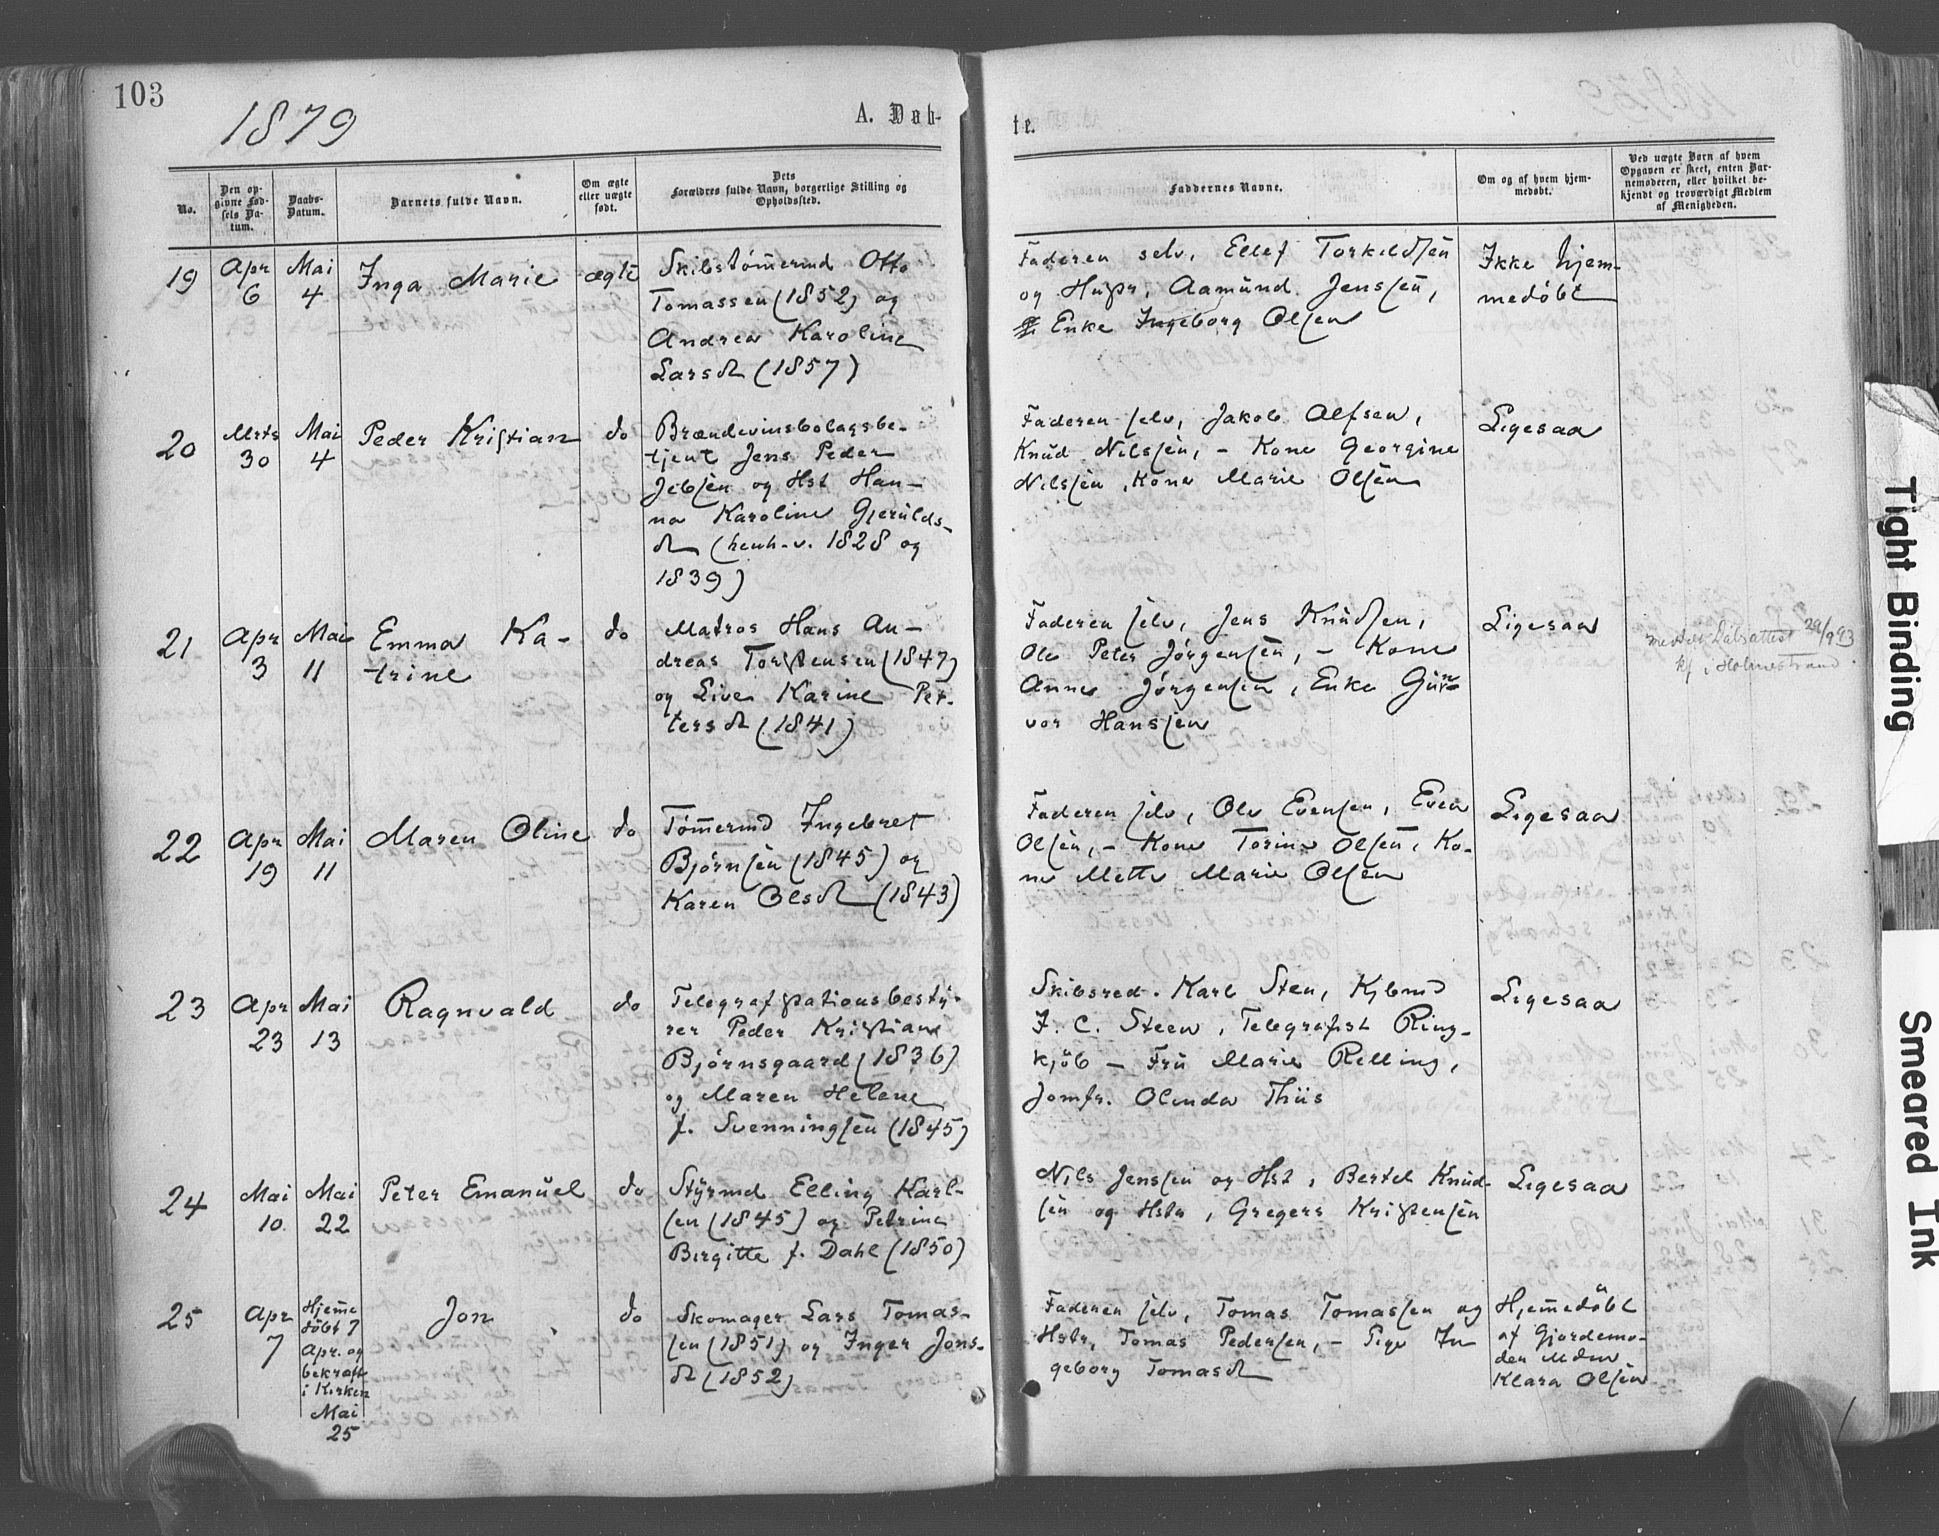 103
1879
A. Døb-
te.
No.
Den op-
givne Fød-
sels Da-
tum.
Daabs-
Datum.
Barnets fulde Navn.
Om ægte
eller uægte
født.
Dets
Forældres fulde Navn, borgerlige Stilling og
Opholdssted.
Faddernes Navne.
Om og af hvem hjem-
medøbt.
Ved uægte Børn af hvem
Opgaven er skeet, enten Bar-
nemoderen, eller hvilket be-
kjendt og troværdigt Medlem
af Menigheden.
19
Apr
6
Mai
4
Inga Marie
ægte
Skibstømermd Otto
Tomassen (1852) og
Andrea Karoline
Larsdt (1857)
Faderen selv, Ellef Torkildsen
og Hustr, Aamund Jenssen,
Enke Ingeborg Olsen
Ikke hjem-
medøbt
20
Mrts
30
Mai
4
Peder Kristian
do
Brændevinsbolagsbe-
tjent Jens Peder
Jebsen og Hst Han-
na Karoline Gjerulds-
dt (henh.v. 1828 og
1839)
Faderen selv, Jakob Alfsen,
Knud Nilssen, - Kone Georgine
Nilssen, Kone Marie Olsen
Ligesaa
21
Apr
3
Mai
11
Emma Ka-
trine
do
Matros Hans An-
dreas Torstensen (1847)
og Live Karine Pet-
tersdt (1841)
Faderen selv, Jens Knudsen,
Ole Peter Jørgensen, - Kone
Anne Jørgensen, Enke Gun-
vor Hanssen
Ligesaa
Daabsattest 29/9 93
i Holmestrand
22
Apr
19
Mai
11
Maren Oline
do
Tømermd Ingebret
Bjørnsen (1845) og
Karen Olsdt (1843)
Faderen selv, Ole Evensen, Even
Olsen, - Kone Torine Olsen, Ko-
ne Mette Marie Olsen
Ligesaa
23
Apr
23
Mai
13
Ragnvald
do
Telegrafstationsbesty-
rer Peder Kristian
Bjørnsgaard (1836)
og Maren Helene
f. Svenningsen (1845)
Skibsred. Karl Sten, Kjbmd
J. C. Steen, Telegrafist Ring-
kjöb - Fru Marie Relling,
Jomfr. Olinda Thiis
Ligesaa
24
Mai
10
Mai
22
Peter Emanuel
do
Styrmd Elling Karl-
sen (1845) og Petrine
Birgitte f. Dahl (1850)
Nils Jenssen og Hst, Bertel Knud-
sen og Hstr, Gregers Kristensen
Ligesaa
25
Apr
7
Hjemme
døbt 7
Apr. og
bekræft
i Kirken
Mai
25
Jon
do
Skomager Lars Tomas-
sen (1851) og Inger Jons-
dt (1852)
Faderen selv, Tomas Tomassen og
Hstr, Tomas Pedersen, - Pige In
geborg Tomasdt
Hjemmedöbt
af Gjordemo-
der Mdm
Klara Olsen
Tight Binding
Smeared Ink